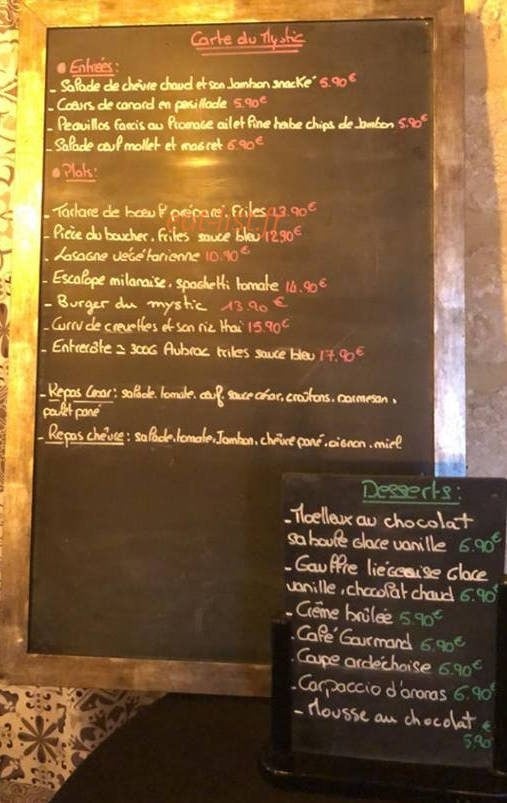 Carte du Mystic
• Entrées:
- Salade de chèvre chaud et son Jambon snacké 5.90€
- Cœurs de canard en persillade 5.90€
- Pequillos farcis au fromage ail et fine herbe chips de Jambon 5.90€
- Salade œuf mollet et magret 6.90€
• Plats:
- Tartare de bœuf préparé, Frites 13.90€
- Pièce du boucher, frites sauce bleu 12.90€
- Lasagne végétarienne 10.90€
- Escalope milanaise, spaghetti tomate 14.90€
- Burger du mystic 13.90€
- Curry de crevettes et son riz thaï 15.90€
- Entrecôte ≃ 300G Aubrac frites sauce bleu 17.90€
- Repas César: salade, tomate, œuf, sauce césar, croûtons, parmesan,
poulet pané
- Repas chèvre: salade, tomate, Jambon, chèvre pané, oignon, miel
Desserts:
- Moelleux au chocolat
sa boule glace vanille 6.90€
- Gauffre liégeoise Glace
vanille, chocolat chaud 6.90€
- Crème brûlée 5.90€
- Café Gourmand 6.90€
- Coupe ardéchoise 6.90€
- Carpaccio d'ananas 6.90€
- Mousse au chocolat €
5.90